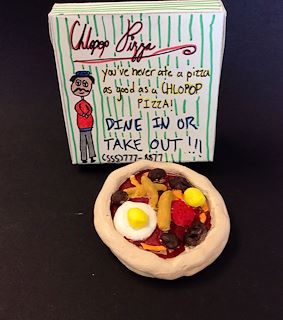 Chlopop Pizza
you've never ate a pizza
as good as a CHLOPOP
PIZZA!
DINE IN OR
TAKE OUT !!!
(555)777-8577